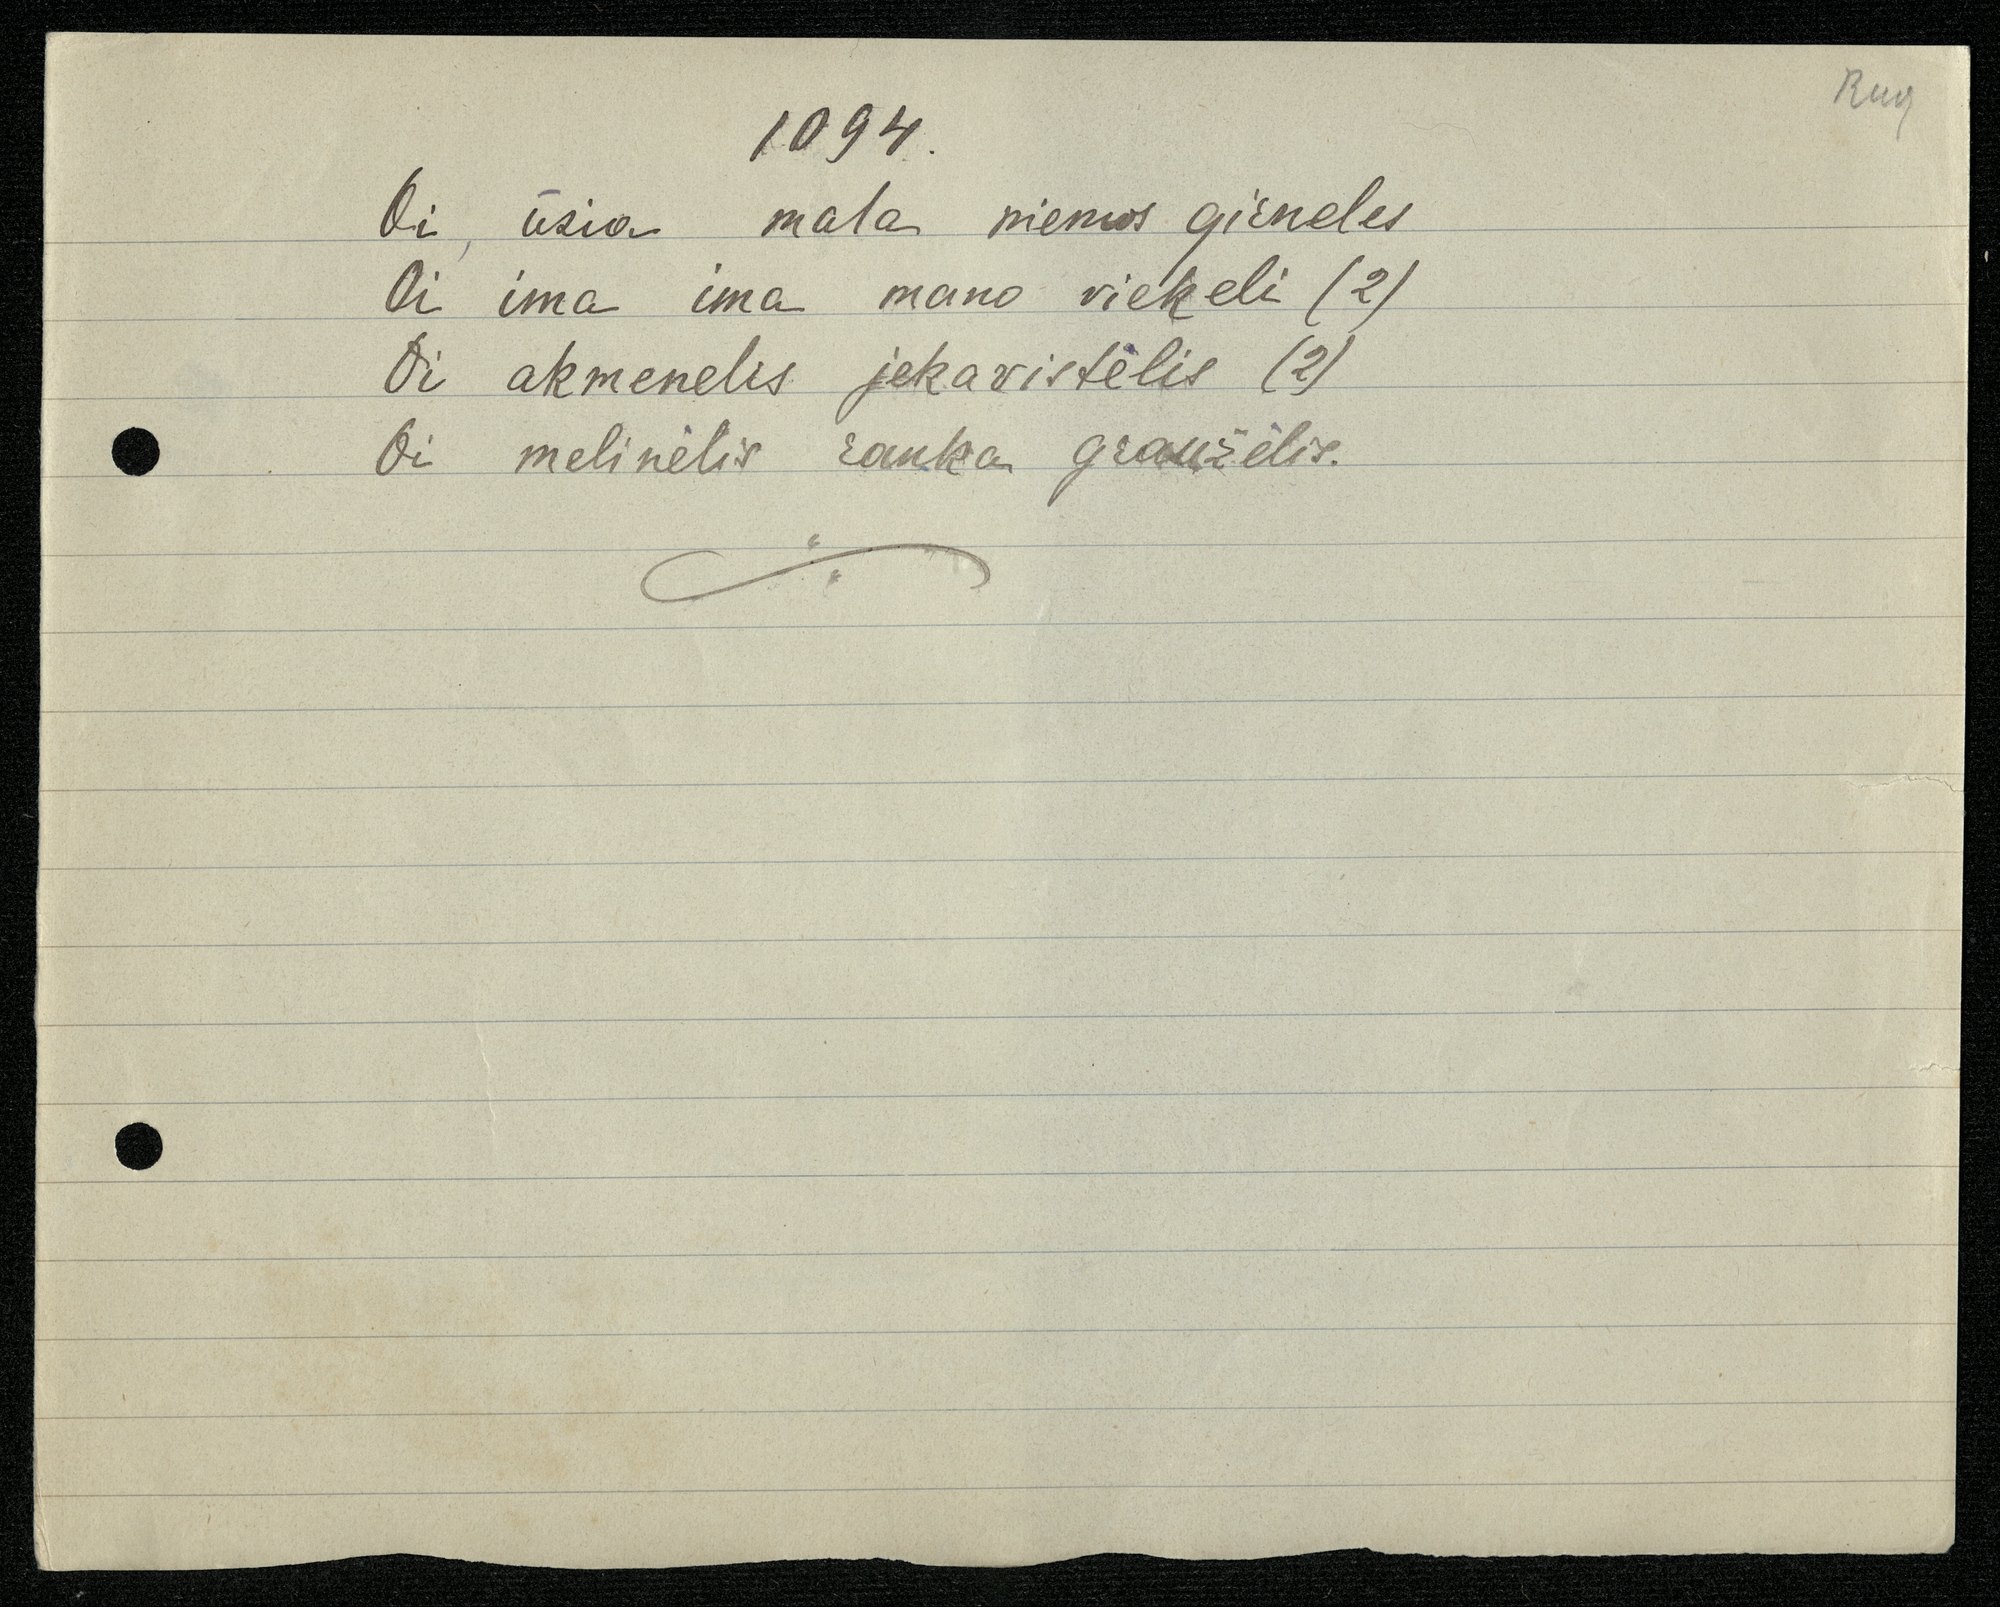 Rug
1094.
Oi, ūsia mala niemos girneles
Oi ima ima mano viekeli (2)
Oi akmenelis jekavistėlis (2)
Oi melinėlis ranka graužėlis.